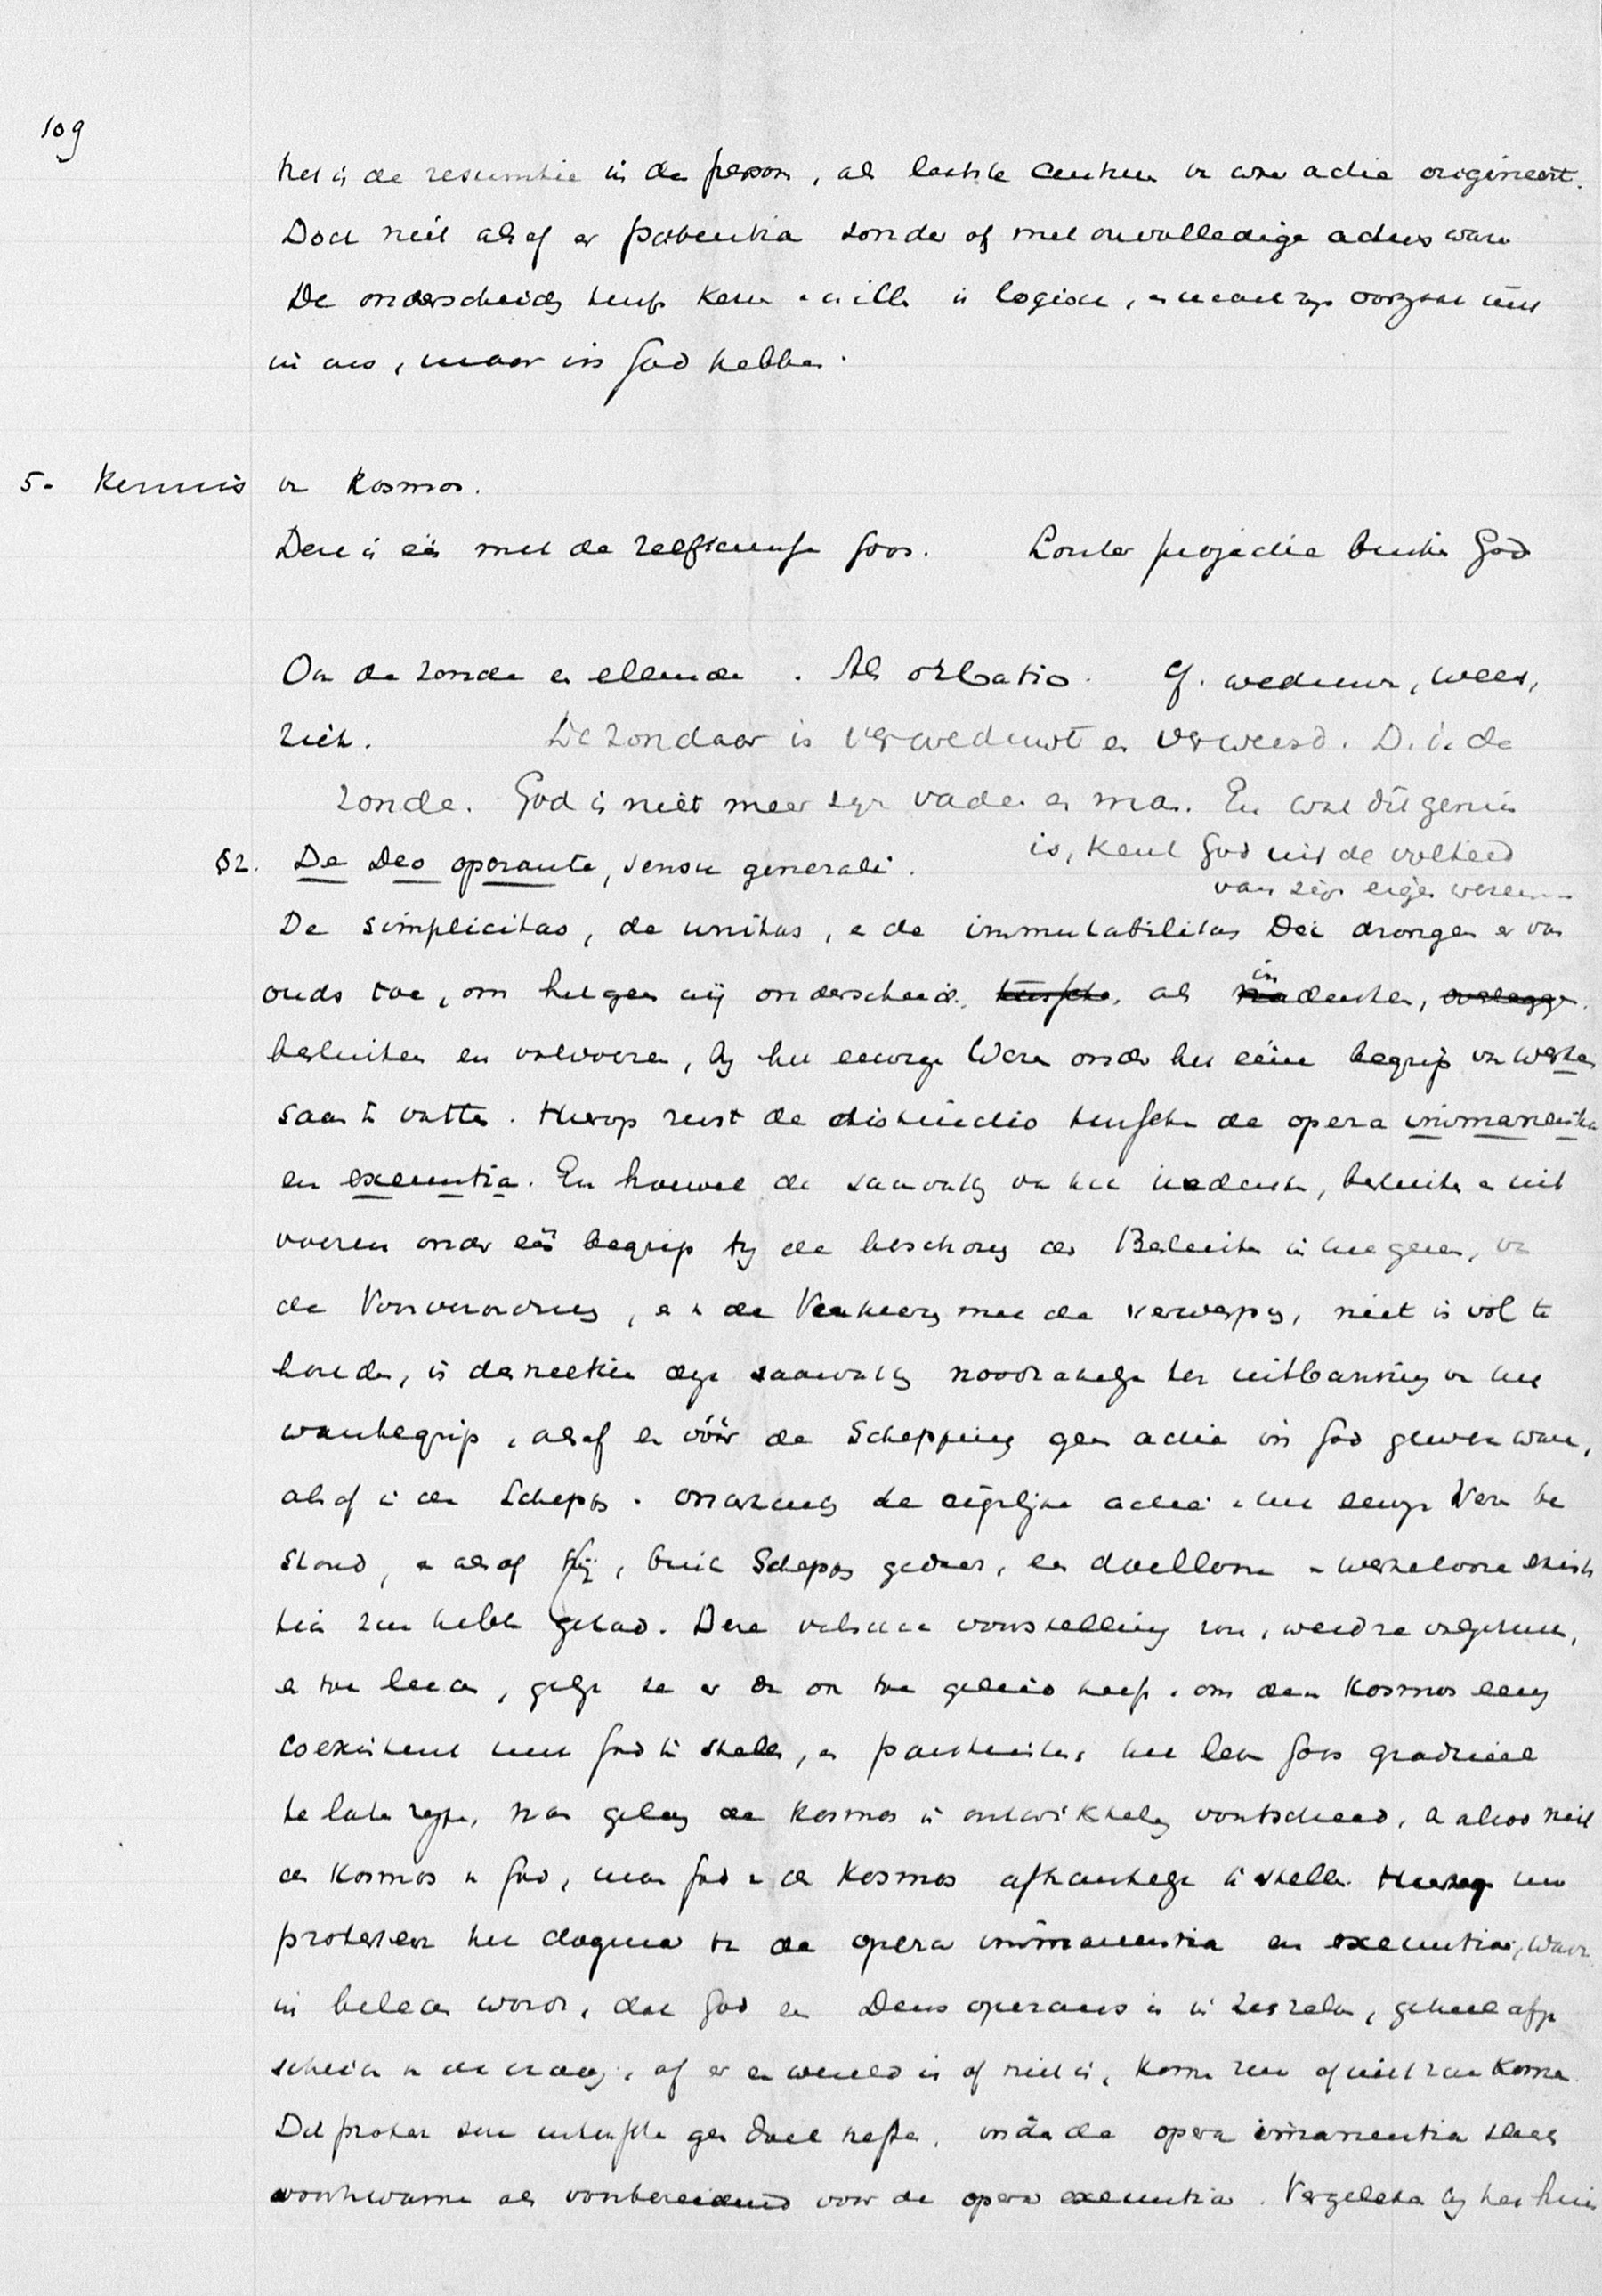 109
Het is de resumtie in de persoon, als laatste centrum v. onze actie origineert.
Doch niet alsof er potentia zonder of met onvolledige actus ware
De onderscheidg tussch kenn. & wille is logisch, & moet zyn oorzaak niet
in ons, maar in God hebben.
5. Kennis v. Kosmos.
Deze is één met de zelfkennisse Gods. Louter projectie buiten God
Ook de zonde en ellende. Als orbatio. Cf. weduwe, wees,
ziek. De zondaar is verweduwt en verweesd. D. i. de
zonde. God is niet meer zyn vader en man. En wat dit gemis
is, kent God uit de volheid
van zijn eigen wezen
§2. De Deo operante, sensu generali.
De simplicitas, de unitas, & de immutabilitas Dei drongen er van
ouds toe, om hetgeen wij onderscheid. tussche. als in denken, overlegge.
besluiten en uitvoeren, by het eeuwige Wezen onder het ééne begrip van werken
saam te vatten. Hierop rust de distinctio tussche de opera immanentia
en exeuntia. En hoewel de saamvattg van het indenken, besluiten & uit
voeren onder één begrip by de beschouwg der Besluiten in het gemeen, van
de Voorverordineg, & v. de Verkiezg met de verwerpg, niet is vol te
houden, is desniettemin deze saamvattg noodzakelyk ter uitbanning van het
wanbegrip, alsof er vóór de Schepping geen actie in God geweest ware,
alsof in de Scheppg & onderhoudg de eigenlijke actie v. het eeuwige Wezen be
stond, & alsof Hij, buiten Scheppg gedacht, een doellooze & werkelooze existen
tie zou hebben gehad. Deze valsche voorstelling zou, werd ze volgehouden,
er toe leiden, gelyk ze er dan ook toe geleid heeft, om den Kosmos eeuwig
coexistent met God te stellen, en pantheistisch het leven Gods gradueel
te laten rijpen, naar gelang de Kosmos in ontwikkelg voortschreed, & alzoo niet
de Kosmos v. God, maar God v. de Kosmos afhankelyk te stellen. Hiertegen nu
protesteert het dogma v. de opera immanentia en exeuntia, waar
in beleden wordt, dat God een Deus operans is in zichzelven, geheel afge
scheiden v. de vraag, of er een wereld is of niet is, komen zou of niet zou komen.
Dit protest zou intusschen geen doel treffen, indien de opera immanentia slechts
voorkwamen als voorbereidend voor de opera exeuntia. Vergeleken by het huis